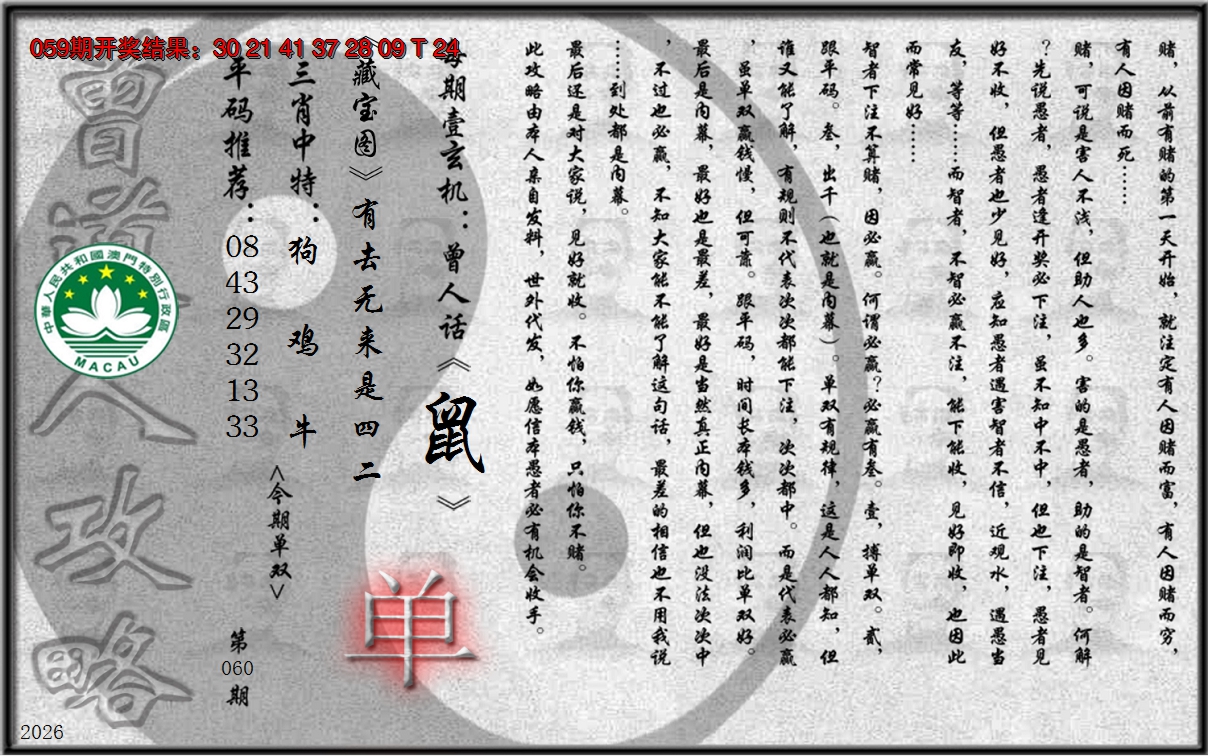 059期开奖结果：30 21 41 37 28 09 T 24
赌，从前有赌的第一天开始，就注定有人因赌而富，有人因赌而穷，
有人因赌而死……
赌，可说是害人不浅，但助人也多。害的是愚者，助的是智者。何解
？先说愚者，愚者逢开奖必下注，虽不知中不中，但也下注，愚者见
好不收，但愚者也少见好，应知愚者遇害智者不信，近观水，遇愚当
友，等等……而智者，不智必赢不注，能下能收，见好即收，也因此
而常见好……
智者下注不算赌，因必赢。何谓必赢？必赢有叁。壹，搏单双。贰，
跟平码。叁，出千（也就是内幕）。单双有规律，这是人人都知，但
谁又能了解，有规则不代表次次都能下注，次次都中。而是代表必赢
，虽单双赢钱慢，但可靠。跟平码，时间长本钱多，利润比单双好。
最后是内幕，最好也是最差，最好是当然真正内幕，但也没法次次中
，不过也必赢，不知大家能不能了解这句话，最差的相信也不用我说
……到处都是内幕。
最后还是对大家说，见好就收。不怕你赢钱，只怕你不赌。
此攻略由本人亲自发料，世外代发，如愿信本愚者必有机会收手。
每期壹玄机：曾人话《鼠》
《藏宝图》有去无来是四二
三肖中特：狗 鸡 牛
<今期单双>
单
平码推荐：08 43 29 32 13 33
第060期
曾道人攻略
中華人民共和國澳門特別行政區
MACAU
2026